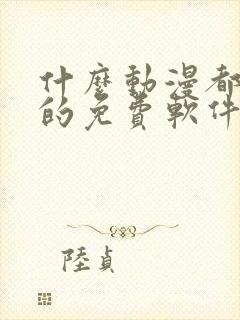 什麼動漫都
的免費軟件
陸貞